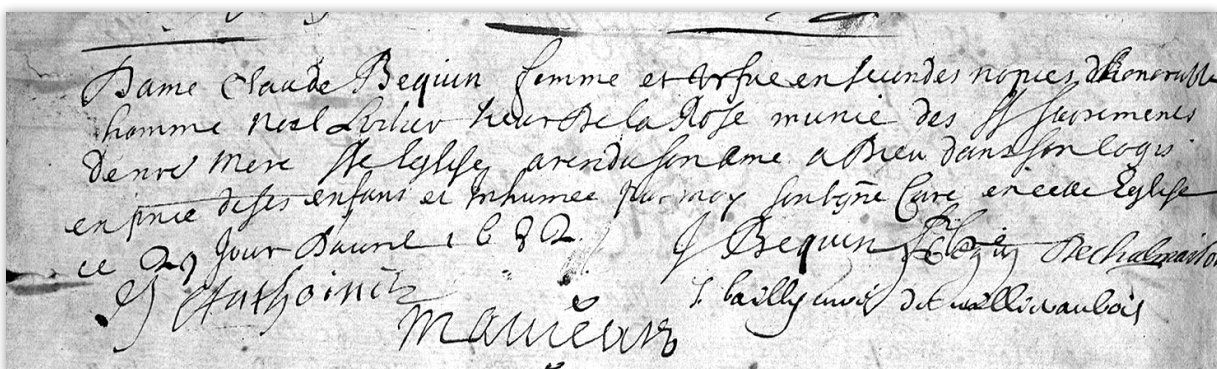 Dame Claude Bequin femme et vefve en secundes nopces d'honorable
homme Noel sieur de la Rose munie des Sts sacrements
de nre mere Ste Eglise a rendu son ame a Dieu dans son logis
en pnce de ses enfans et inhumee par moy soubsigne Cure en cette Eglise
ce 29 jour d'auril 1682 J Bequin
J bailly curé de